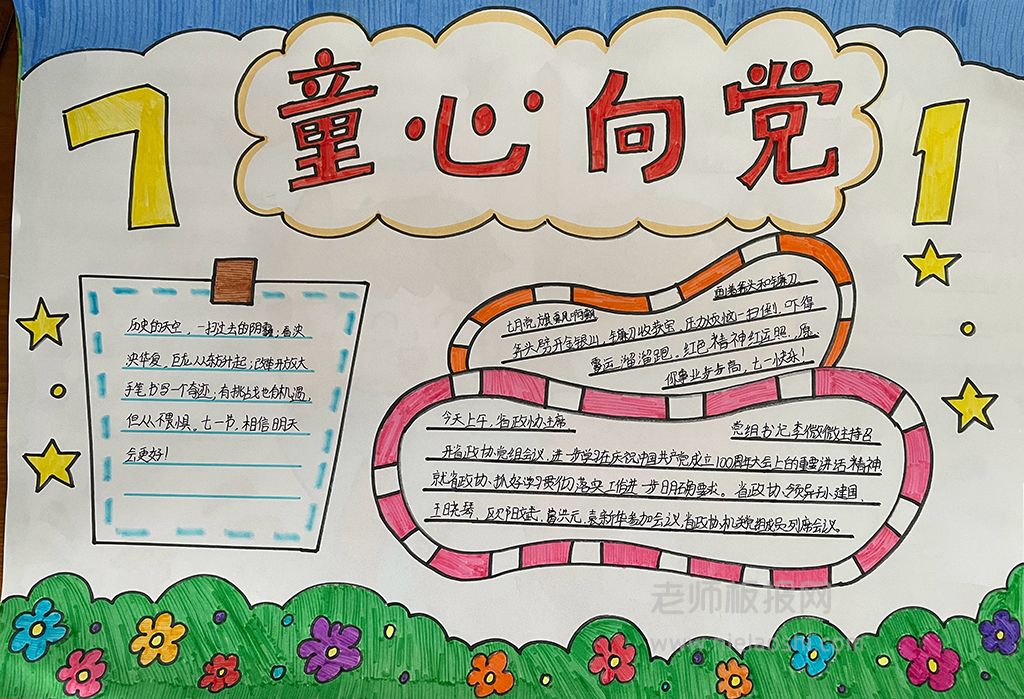 童心向党
7
1
历史的天空,一扫过去的阴霾;看泱
泱华夏,巨龙从东方升起;改革开放大
手笔书写一个奇迹;有挑战也有机遇,
但从不畏惧。七一节,相信明天
会更好!
七月党旗 啊飘 画满斧头和镰刀,
斧头劈开金银山,镰刀收获宝,压力烦恼一扫倒,吓得
霉运溜溜跑。红色精神红运照,愿
你事业步步高,七一快乐!
今天上午,省政协主席 党组书记李微微主持召
开省政协党组会议,进一步学习在庆祝中国共产党成立100周年大会上的重要讲话精神
就省政协、抓好学习贯彻落实工作进一步明确要求。省政协领导孙建国、
王晓琴,欧阳斌、 洪元、袁新华参加会议,省政协机关党组成员列席会议。
老师板报网